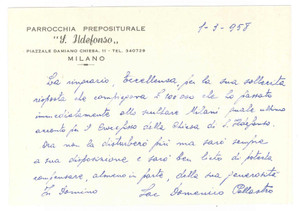 PARROCCHIA PREPOSITURALE
"S. Ildefonso"
PIAZZALE DAMIANO CHIESA, 11 - TEL. 340728
MILANO
1-3-958
La ringrazio, Eccellenza, per la sua sollecita
risposta che comprendeva l'assegno che ho passato
immediatamente allo scultore Milani quale ultimo
acconto per il Crocefisso della Chiesa di S. Ildefonso.
Ora non la disturberò più ma sarò sempre
a sua disposizione e sarò ben lieto di poterla
compensare, almeno in parte, della sua generosità
In Domino
Sac. Domenico